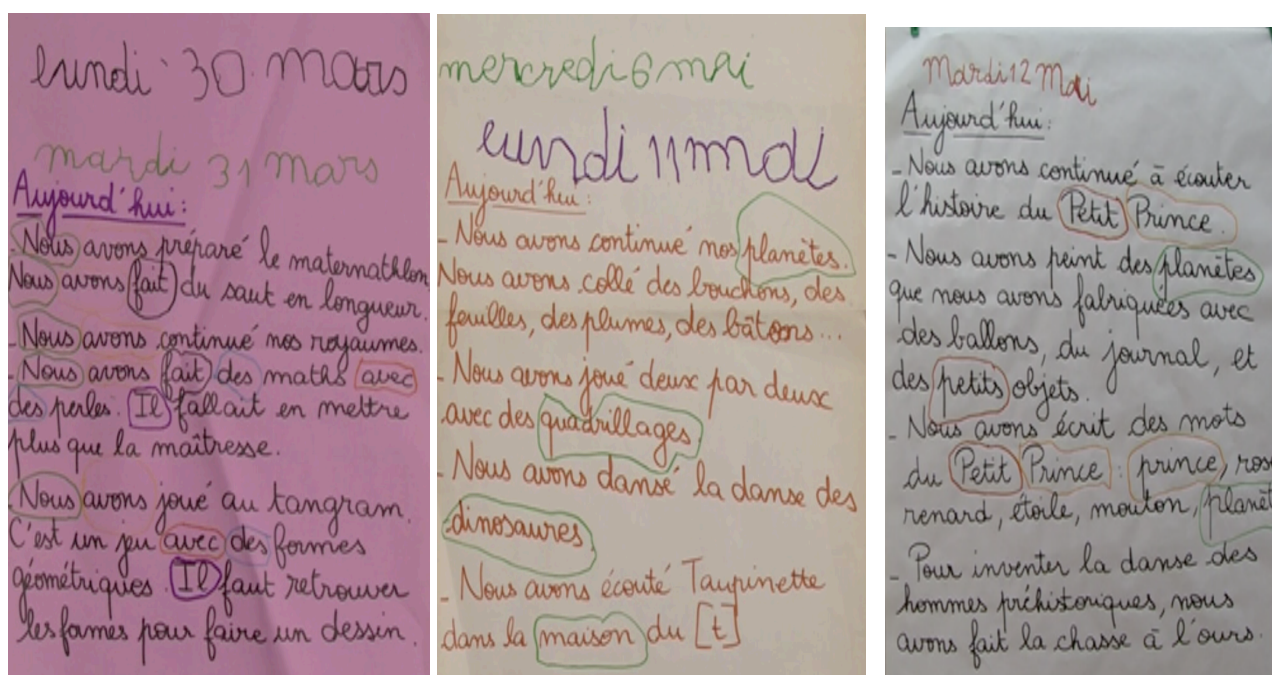 lundi 30 mars
mardi 31 mars
Aujourd'hui :
- Nous avons préparé le maternathlon
Nous avons fait du saut en longueur.
- Nous avons continué nos royaumes.
- Nous avons fait des maths avec
des perles. Il fallait en mettre
plus que la maîtresse.
- Nous avons joué au tangram.
C'est un jeu avec des formes
géométriques. Il faut retrouver
les formes pour faire un dessin.
mercredi 6 mai
lundi 11 mai
Aujourd'hui :
- Nous avons continué nos planètes.
Nous avons collé des bouchons, des
feuilles, des plumes, des bâtons...
- Nous avons joué deux par deux
avec des quadrillages.
- Nous avons dansé la danse des
dinosaures
- Nous avons écouté Taupinette
dans la maison du [t]
Mardi 12 Mai
Aujourd'hui :
- Nous avons continué à écouter
l'histoire du Petit Prince.
- Nous avons peint des planètes
que nous avons fabriquées avec
des ballons, du journal, et
des petits objets.
- Nous avons écrit des mots
du Petit Prince : prince, rose
renard, étoile, mouton, planèt
- Pour inventer la danse des
hommes préhistoriques, nous
avons fait la chasse à l'ours.